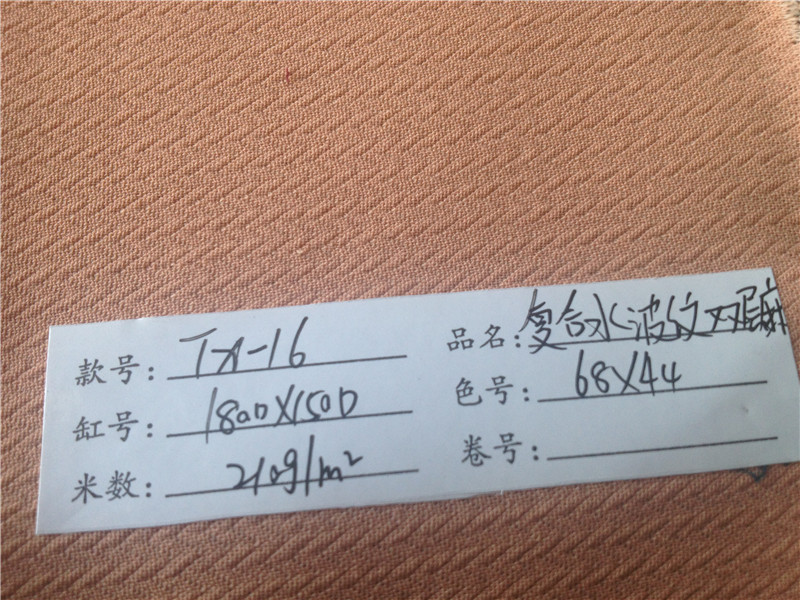 款号: TX-16
品名: 复合水波纹双层麻
缸号: 1800X150D
色号: 68X44
米数: 210g/m²
卷号: